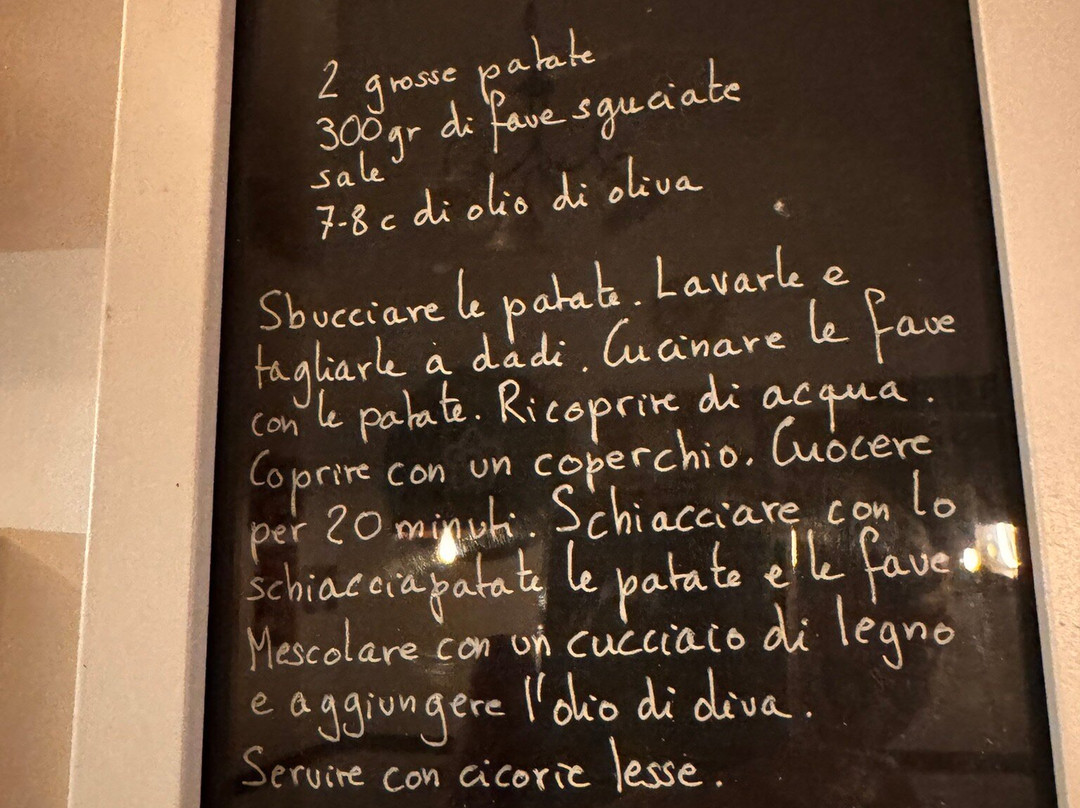 2 grosse patate
300gr di fave sguciate
sale
7-8 c di olio di oliva
Sbucciare le patate. Lavarle e
tagliarle a dadi. Cucinare le fave
con le patate. Ricoprire di acqua.
Coprire con un coperchio. Cuocere
per 20 minuti. Schiacciare con lo
schiacciapatate le patate e le fave
Mescolare con un cucciaio di legno
e aggiungere l'olio di oliva.
Servire con cicorie lesse.